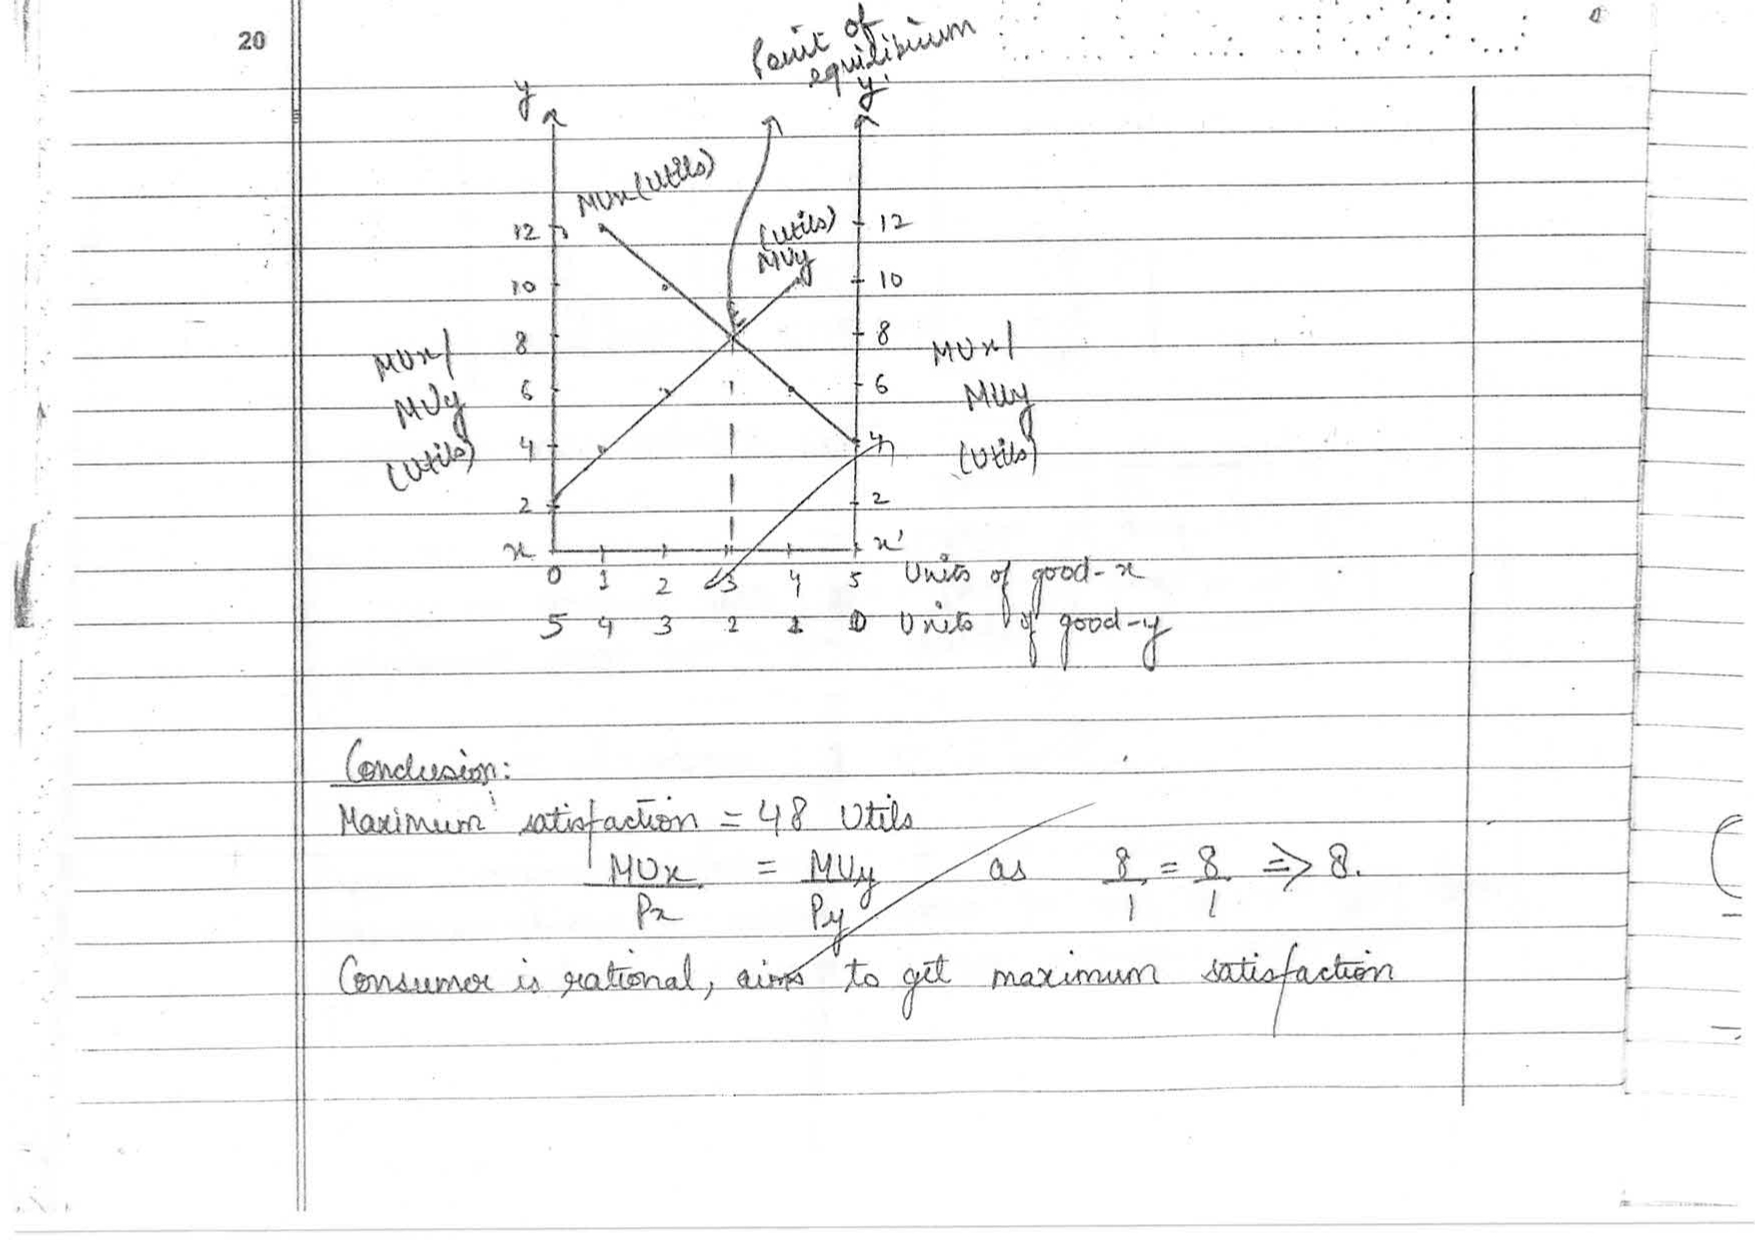 20
Point of
equilibium
y
y'
MUx (Utils)
(utils)
MUy
12
12
10
10
E
8
8
MUx/
MUy
(Utils)
MUx/
MUy
(Utils)
6
6
4
4
2
2
x
x'
0 1 2 3 4 5 Units of good-x
5 4 3 2 1 0 Units of good-y
Conclusion:
Maximum satisfaction = 48 Utils
MUx = MUy as 8 = 8 => 8.
Px Py 1 1
Consumer is rational, aims to get maximum satisfaction